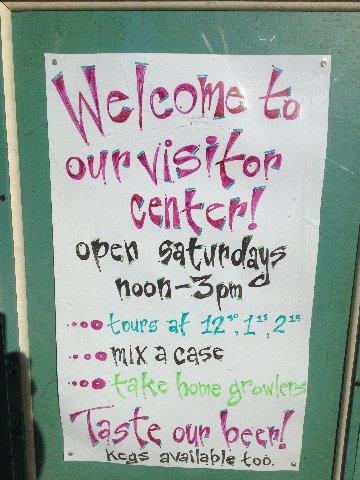 Welcome to
our visitor
center!
open saturdays
noon-3pm
tours at 12³⁰, 1¹⁵, 2¹⁵
mix a case
take home growlers
Taste our beer!
kegs available too.